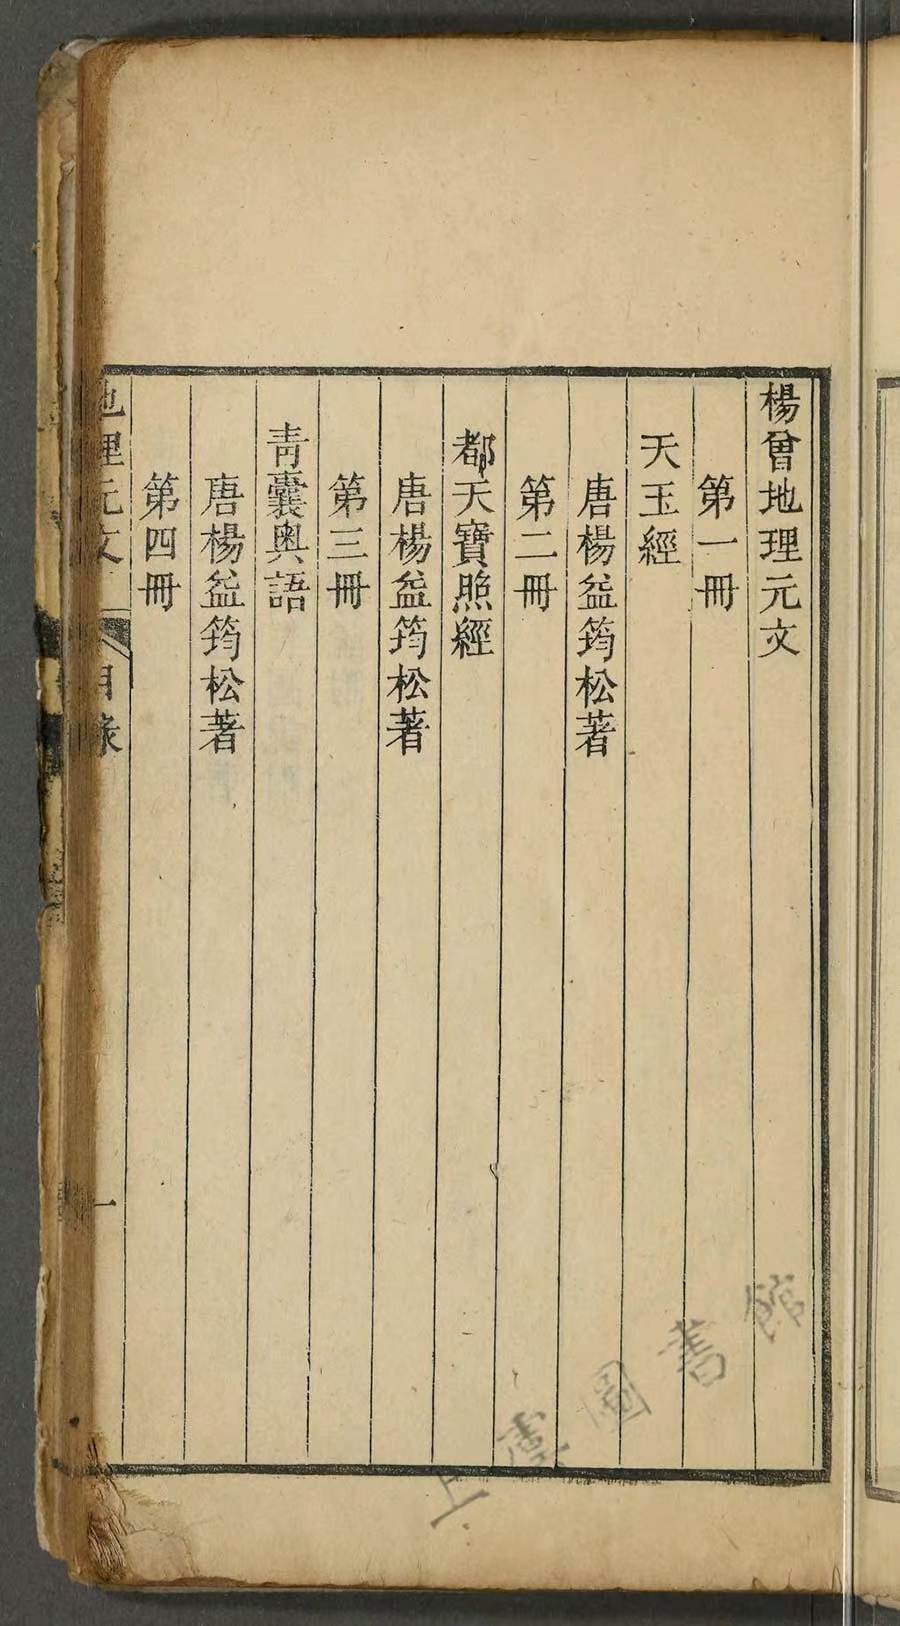 楊曾地理元文
第一冊
天玉經
唐楊益筠松著
第二冊
都天寶照經
唐楊益筠松著
第三冊
青囊奥語
唐楊益筠松著
第四冊
地理元文
目錄
一
上虞圖書館